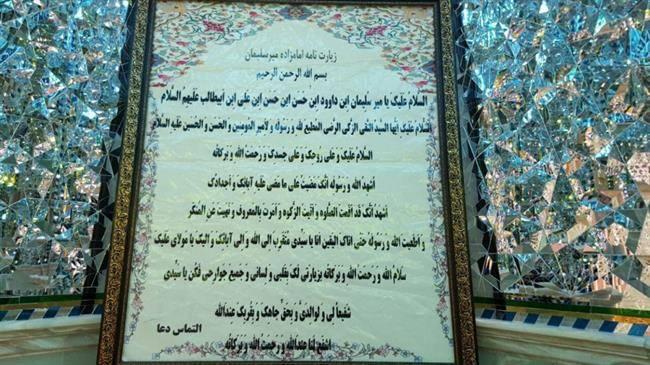 زیارت نامه امامزاده میرسلیمان
بسم الله الرحمن الرحیم
السلام علیک یا میر سلیمان ابن داوود ابن حسن ابن حسن ابن علی ابن ابیطالب علیهم السلام
السلام علیک ایها السید التقی الزکی الرضی المطیع لله و رسوله و لامیر المومنین و الحسن و الحسین علیه السلام
السلام علیک و علی روحک و علی جسدک و رحمت الله و برکاته
اشهد الله و رسوله انک مضیت علی ما مضی علیه آبائک و اجدادک
اشهد انک قد اقمت الصلوه و اتیت الزکوه و امرت بالمعروف و نهیت عن المنکر
و اطعیت الله و رسوله حتی اتاک الیقین انا یا سیدی متقرب الی الله و الی آبائک و الیک یا مولای علیک
سلام الله و رحمت الله و برکاته بزیارتی لک بقلبی و لسانی و جمیع جوارحی فکن یا سیدی
شفیعا لی و لوالدی و بحق جاهک و بقربک عندالله
التماس دعا
اشفع لنا عندالله و رحمت الله و برکاته